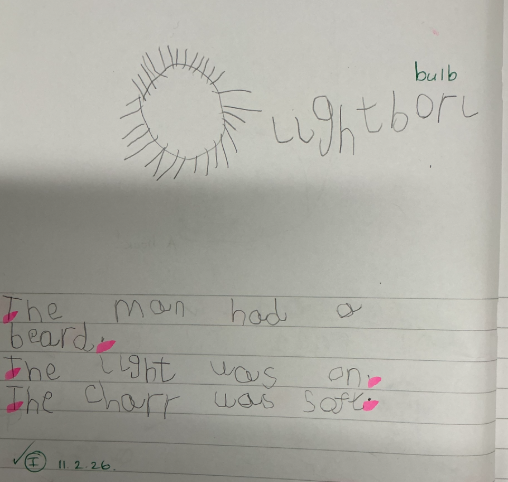 bulb
Lightborl
The man had a
beard.
The Light was on.
The Charr was Soft.
✓ I 11.2.26.